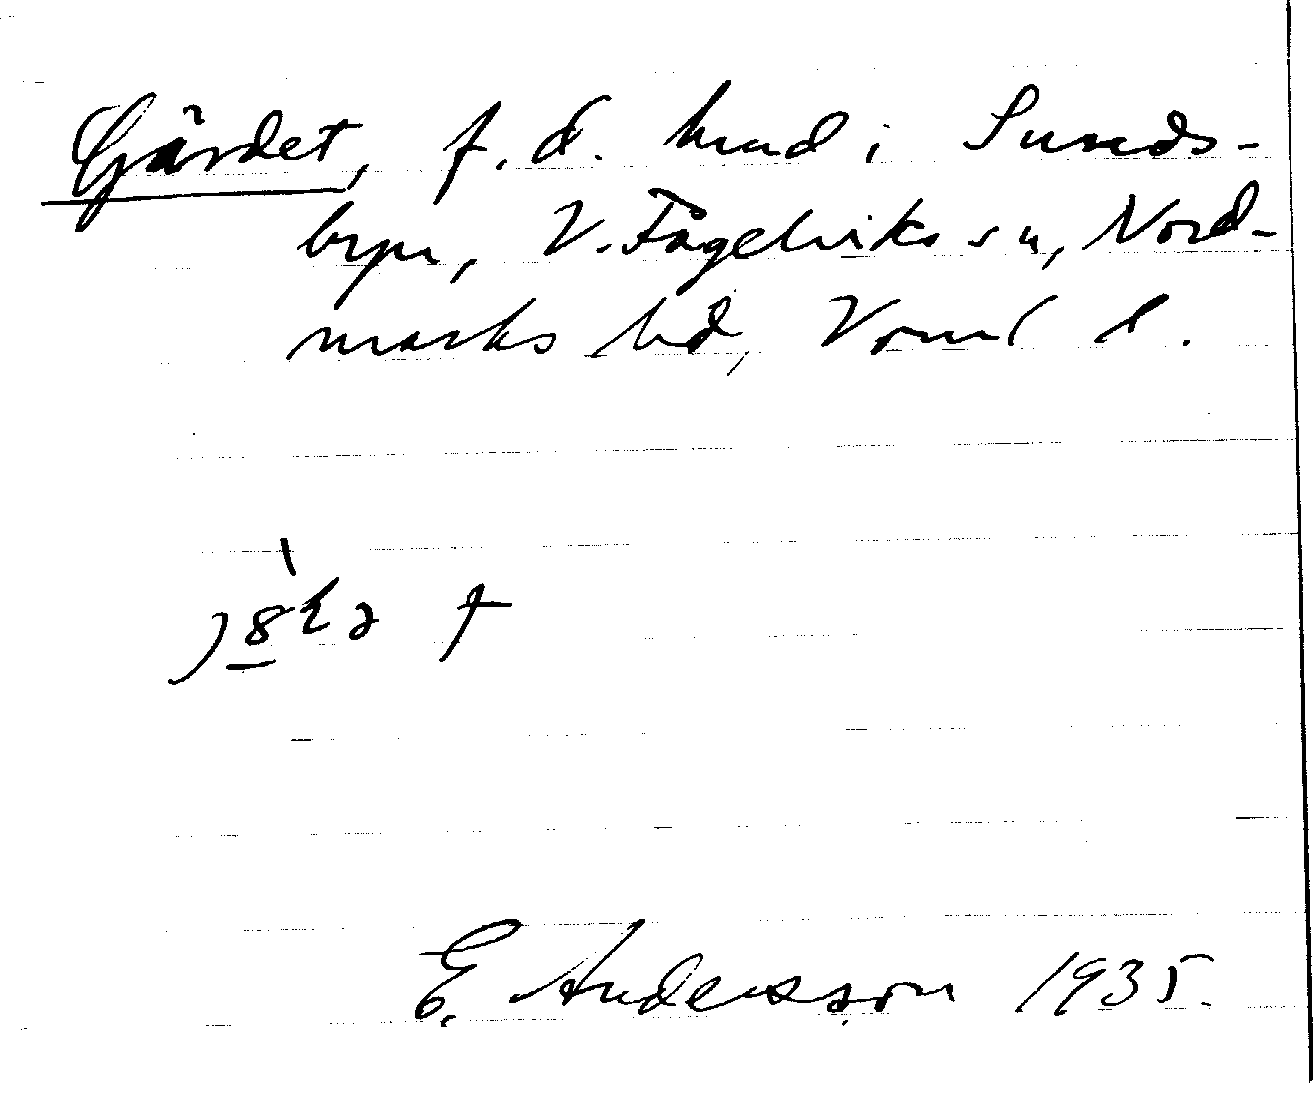 Gärdet, f.d. hmd i Sunds-
byn, V. Fågelviks sn, Nord-
marks hd, Verml l.
E. Andersson 1935.